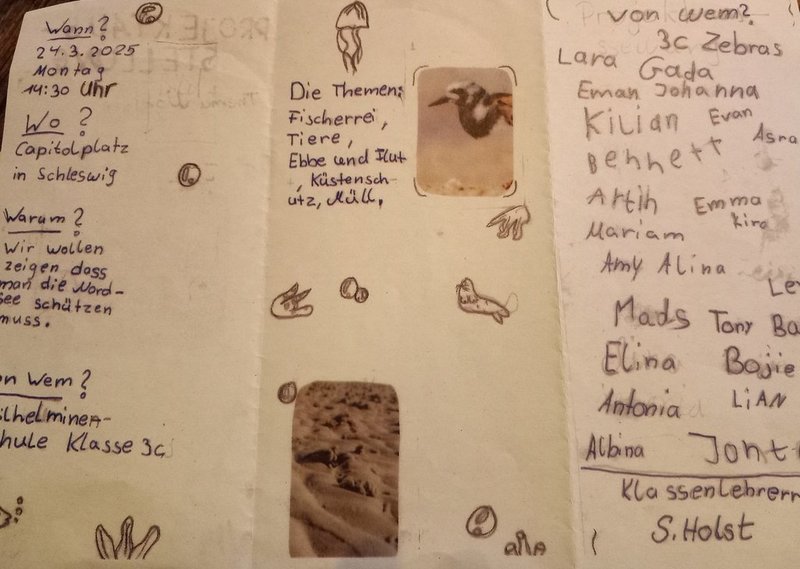 Wann?
24.3.2025
Montag
14:30 Uhr
Wo?
Capitolplatz
in Schleswig
Warum?
Wir wollen
zeigen dass
man die Nord-
see schützen
muss.
on Wem?
ilhelminen-
hule Klasse 3c
Die Themen:
Fischerrei,
Tiere,
Ebbe und Flut
, Küstensch-
utz, Müll.
von wem?
3c Zebras
Lara Gada
Eman Johanna
Kilian Evan
Bennett Asra
Artin Emma
Mariam Kira
Amy Alina
Le
Mads Tony Ba
Elina Bojie
Antonia LiAN
Albina Jont
Klassenlehrer
S. Holst